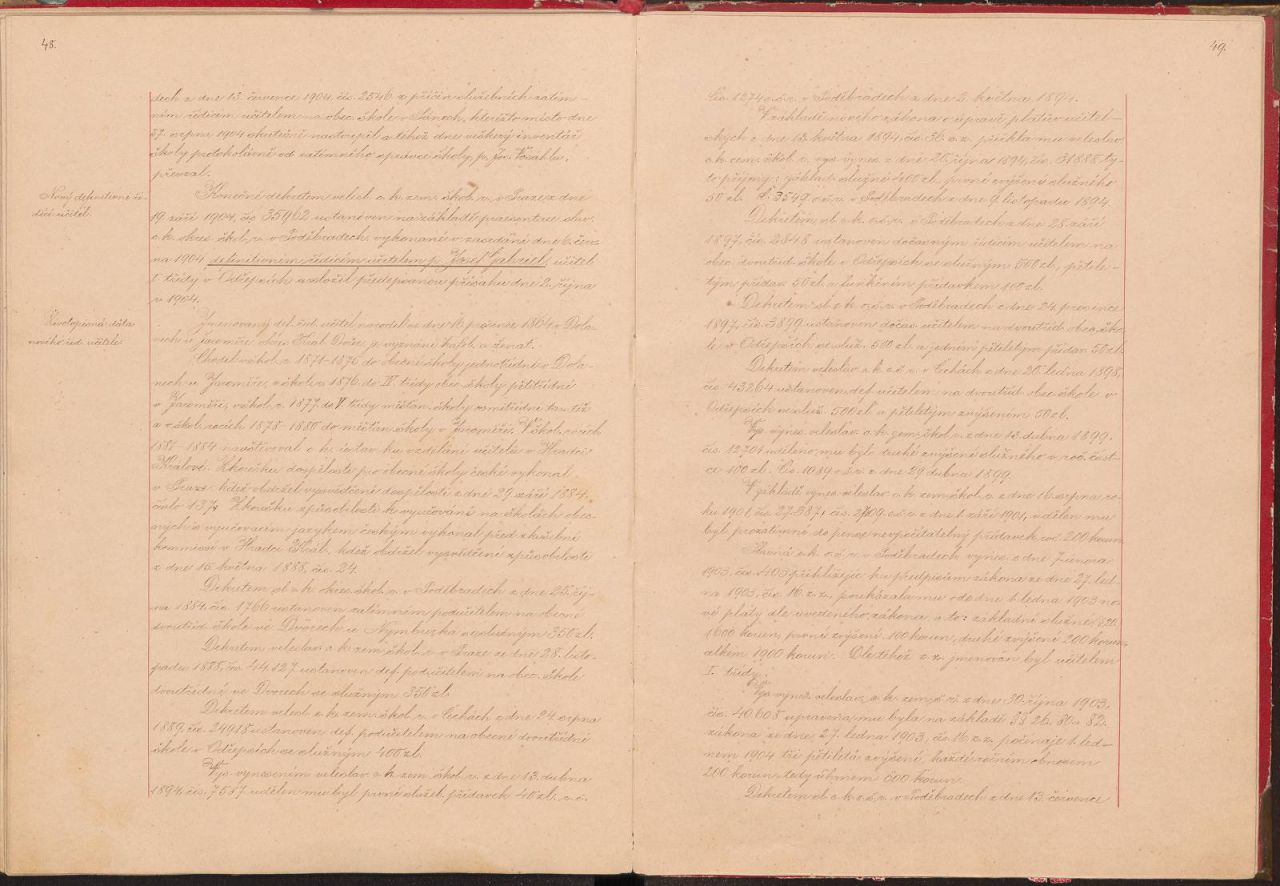 48.
dech z dne 13. července 1904 čís. 2546 z příčin služebních zatím-
ním řídícím učitelem na obec. škole v Sánech, kteréžto místo dne
27. srpna 1904 skutečně nastoupil a téhož dne veškerý inventář
školy protokolárně od zatímného správce školy, p. Jos.
převzal.
Nový definitivní ří-
dící učitel.
Konečně dekretem veleсt. c. k. zem. škol. r. v Praze z dne
19. září 1904, čís. 35902 ustanoven na základě praesentace slav.
c. k. okres. škol. r. v Poděbradech, vykonané v zasedání dne 6. červ-
na 1904 definitivním řídícím učitelem p. Josef Gabriel, učitel
I. třídy v Odřepsích a složil předepsanou přísahu dne 2. října
r. 1904.
Životopisná data
nového říd. učitele
Jmenovaný def. říd. učitel narodil se dne 16. prosince 1864 v Dola-
nech u Jaroměře, okr. Král. Dvůr, je vyznání kathol. a ženat.
Chodil v škol. r. 1871-1876 do školy jednotřídní v Dola-
nech u Jaroměře, v škol. r. 1876 do IV. třídy obec. školy pětitřídní
v Jaroměři, v škol. r. 1877 do V. třídy měšťan. školy osmitřídní tamtéž
a v škol. rocích 1878-1880 do měšťan. školy v Jaroměři. V škol. rocích
1881-1884 navštěvoval c. k. ústav ku vzdělání učitelů v Hradci
Králové. Zkoušku dospělosti pro obecné školy české vykonal
v Praze, kdež obdržel vysvědčení dospělosti z dne 29. září 1884,
číslo 137. Zkoušku způsobilosti k vyučování na školách obec-
ných s vyučovacím jazykem českým vykonal před zkušební
komissí v Hradci Král., kdež obdržel vysvědčení způsobilosti
z dne 15. května 1888, čís. 24.
Dekretem sl. c. k. okres. škol. r. v Poděbradech z dne 25. říj-
na 1884, čís. 1766 ustanoven zatímním podučitelem na obecné
dvoutříd. škole ve Dvorech u Nymburka se služným 350 zl.
Dekretem veleсt. c. k. zem. škol. r. v Praze ze dne 28. listo-
padu 1888, čís. 44.127 ustanoven def. podučitelem na obec. škole
dvoutřídní ve Dvorech se služným 350 zl.
Dekretem veleсt. c. k. zem. škol. r. v Čechách z dne 24. srpna
1889, čís. 24918 ustanoven def. podučitelem na obecné dvoutřídní
škole v Odřepsích se služným 400 zl.
Vys. vynesením veleslav. c. k. zem. škol. r. z dne 13. dubna
1894, čís. 7587 udělen mu byl první služeb. přídavek 40 zl. r. č.
49.
čís. 1274 o. š. r. v Poděbradech z dne 2. května 1894.
V základě nového zákona o úpravě platův učitel-
ských z dne 13. května 1894, čís. 36. z. z. přiřkla mu veleslav.
c. k. zem. škol. r. vys. výnos. z dne 26. října 1894, čís. 31888 ty-
to příjmy: základ. služné 400 zl., první zvýšení služného
50 zl. Č. 3549 o. š. r. v Poděbradech z dne 9. listopadu 1894.
Dekretem sl. c. k. o. š. r. v Poděbradech z dne 28. září
1897, čís. 2848 ustanoven dočasným řídícím učitelem na
obec. dvoutříd. škole v Odřepsích se služným 550 zl., pětile-
tým přídav. 50 zl. a funkčním přídavkem 100 zl.
Dekretem sl. c. k. o. š. r. v Poděbradech z dne 24. prosince
1897, čís. 3899 ustanoven dočas. učitelem na dvoutříd. obec. ško-
le v Odřepsích se služ. 500 zl. a jedním pětiletým přídav. 50 zl.
Dekretem veleslav. c. k. z. š. r. v Čechách z dne 26. ledna 1898,
čís. 43264 ustanoven def. učitelem na dvoutříd. obec. škole v
Odřepsích se služ. 500 zl. a pětiletým zvýšením 50 zl.
Vys. výnos. veleslav. c. k. zem. škol. r. z dne 13. dubna 1899.
čís. 12701 uděleno mu bylo druhé zvýšení služného v roč. část-
ce 100 zl. Čís. 1089 o. š. r. z dne 29. dubna 1899.
V základě výnos. veleslav. c. k. zem. škol. r. z dne 16. srpna ro-
ku 1901, čís. 27587, čís. 2409 o. š. r. z dne 1. září 1901, udělen mu
byl prozatímně do pense nevpočitatelný přídavek roč. 200 korun.
Slavná c. k. o. š. r. v Poděbradech výnos. z dne 7. února
1903, čís. 403 přihlížejíc ku předpisům zákona ze dne 27. led-
na 1903, čís. 16. z. z., poukázala mu ode dne 1. ledna 1903 no-
vé platy dle uvedeného zákona a to: základní služné
1600 korun, první zvýšení 100 korun, druhé zvýšení 200 korun,
celkem 1900 korun. Dle téhož z. z. jmenován byl učitelem
I. třídy.
Vys. výnos. veleslav. c. k. zem. š. r. z dne 30. října 1903,
čís. 40608 upravena mu byla na základě §§ 26. 80. a 82.
zákona ze dne 27. ledna 1903, čís. 16. z. z. počínaje 1. led-
nem 1904 tři pětiletá zvýšení, každé ročním obnosem
200 korun, tedy úhrnem 600 korun.
Dekretem sl. c. k. o. š. r. v Poděbradech z dne 13. července